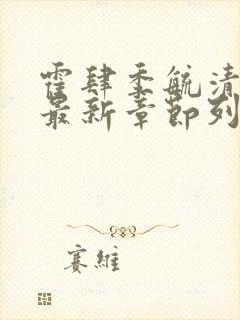 霍肆季毓清
最新章節列
賽維